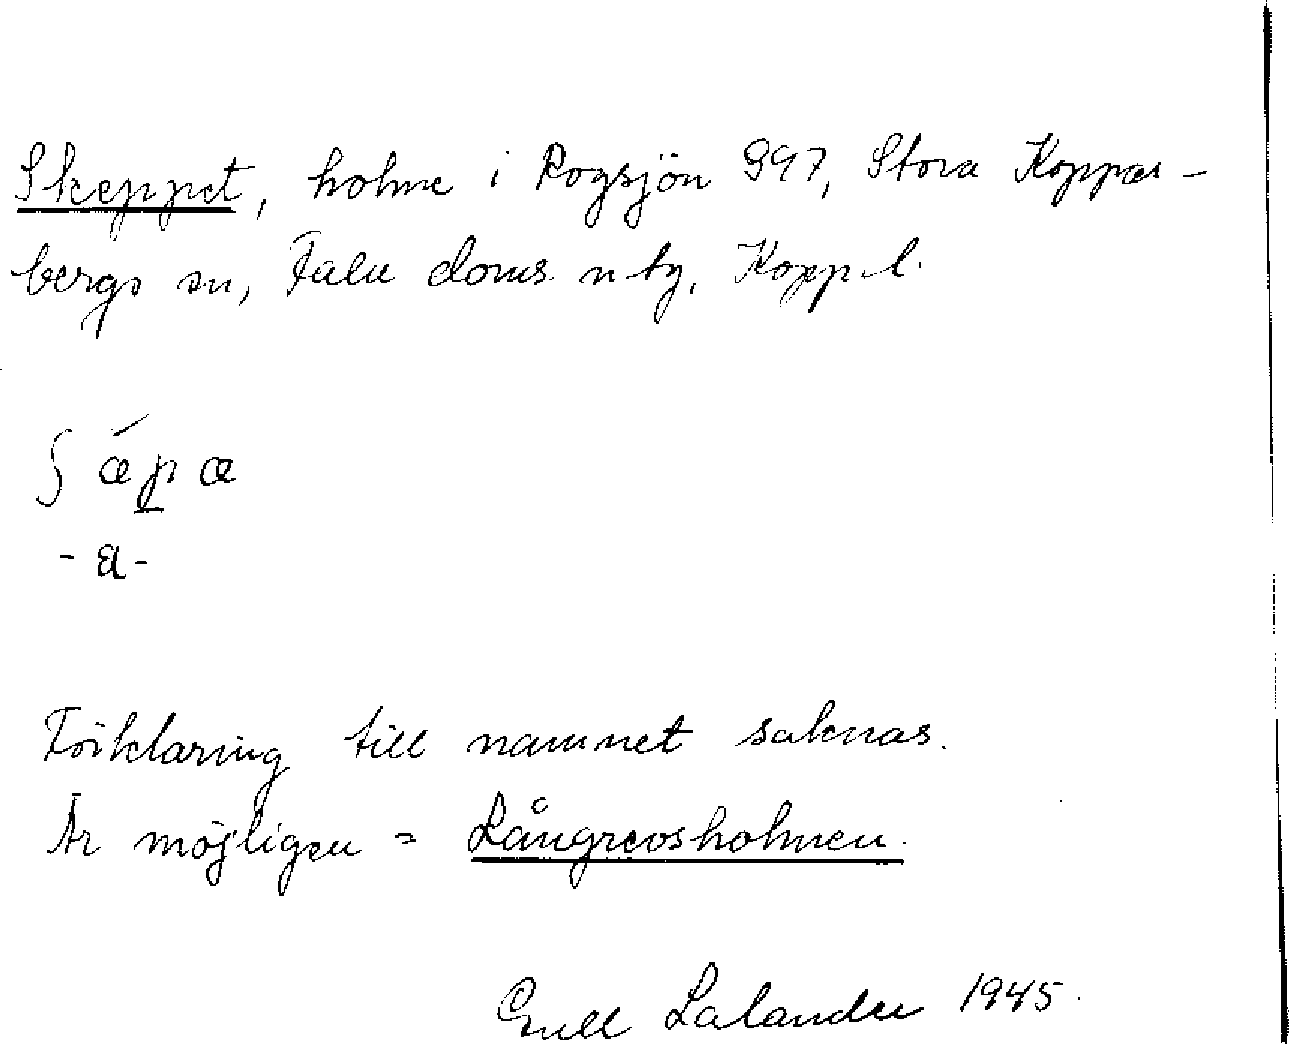 Skeppet, holme i Rogsjön 997, Stora Koppar-
bergs sn, Falu doms. n tg, Kopp. l.
ʃ ǽp̲ æ
- a -
Förklaring till namnet saknas.
Är möjligen = Långrevsholmen.
Gull Lalander 1945.